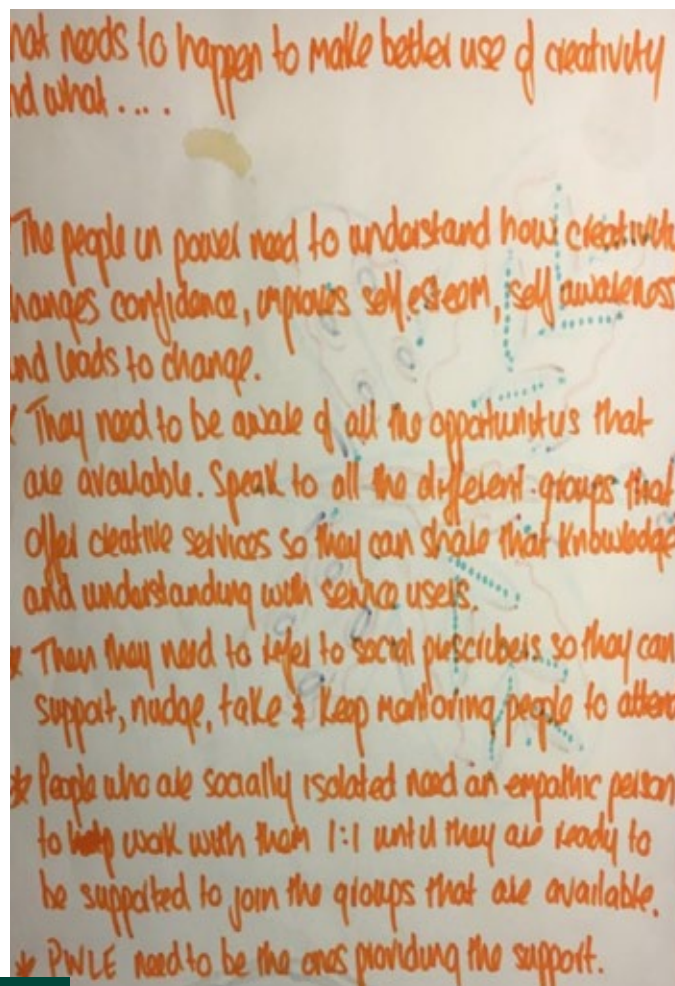 hat needs to happen to make better use of creativity
nd what ....
The people in power need to understand how creativit
hanges confidence, improves self esteem, self awareness
nd leads to change.
* They need to be aware of all the opportunitus that
are available. Speak to all the different groups that
offer creative services so they can share that knowledge
and understanding with service users.
* Then they need to refer to social prescribers so they can
support, nudge, take & keep monitoring people to atten
* People who are socially isolated need an empathic person
to help work with them 1:1 until they are ready to
be supported to join the groups that are available.
* PWLE need to be the ones providing the support.